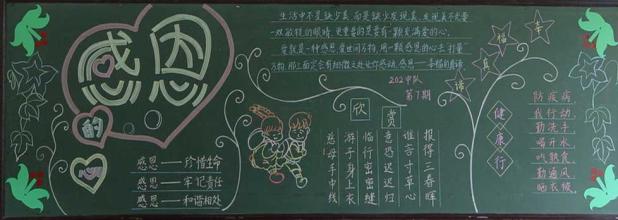 感恩
的
心
感恩——珍惜生命
感恩——牢记责任
感恩——和谐相处
生活中不是缺少美,而是缺少发现美,发现美不光要
一双敏锐的眼睛,更重要的是要有一颗充满爱的心。
爱就是一种感恩,爱世间万物,用一颗感恩的心去打量
万物,那上面定会有细微之处让你感动,感恩——幸福的真谛
202中队
第7期
欣赏
慈母手中线
游子身上衣
临行密密缝
意恐迟迟归
谁言寸草心
报得三春晖
幸
福
真
谛
健
康
行
防疾病
我行动
勤洗手
喝开水
吃熟食
勤通风
晒衣被